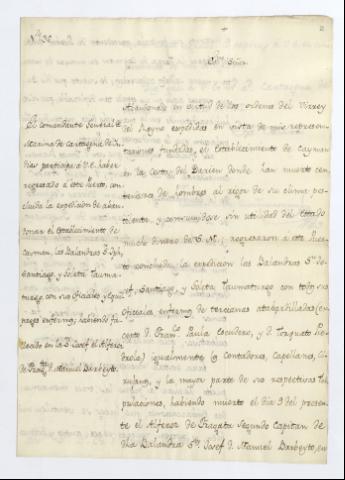 Exmo. Señor
El Comandante General de
Marina de Cartagena de In-
dias participa a V.E. haber
regresado a este Puerto, con-
cluida la expedicion de aban-
donar el establecimiento de
Cayman, las Balandras Sn. Josef,
Santiago, y Goleta Tauma-
turgo con sus oficiales y Equi-
pages enfermos, habiendo fa-
llecido en la Sn. Josef el Alferez
de Fragta. D. Manuel Barbeyto.
Abandonado en virtud de las ordenes del Virrey
del Reyno expedidas en vista de mis represen-
taciones fundadas, el establecimiento de Cayman
en la Costa del Darien donde han muerto cen-
tenares de hombres al rigor de su clima pes-
tilente, y consumidose, sin utilidad del Estado
mucho dinero de S.M.; regresaron a este Puer-
to concluida la expedicion las Balandras Sn. Jo-
sef, Santiago, y Goleta Taumaturgo con todos sus
Oficiales enfermos de tercianas atabardilladas (ex-
cepto D. Franco. Paula Escudero, y D. Torquato Pie-
drola) igualmente q. Contadores, Capellanes, Ci-
rujanos, y la mayor parte de sus respectivas tri-
pulaciones, habiendo muerto el dia 3 del presen-
te el Alferez de Fragata Segundo Capitan de
dha Balandra Sn. Josef D. Manuel Barbeyto, en